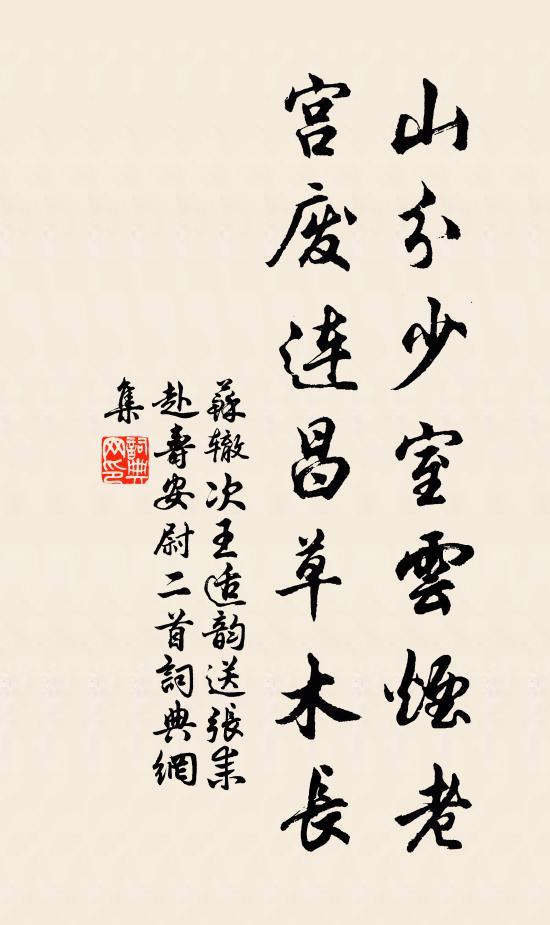 山分少室雲煙老
宮廢連昌草木長
蘇辙次王适韵送張耒
赴壽安尉二首詞典網
集
詞典网印